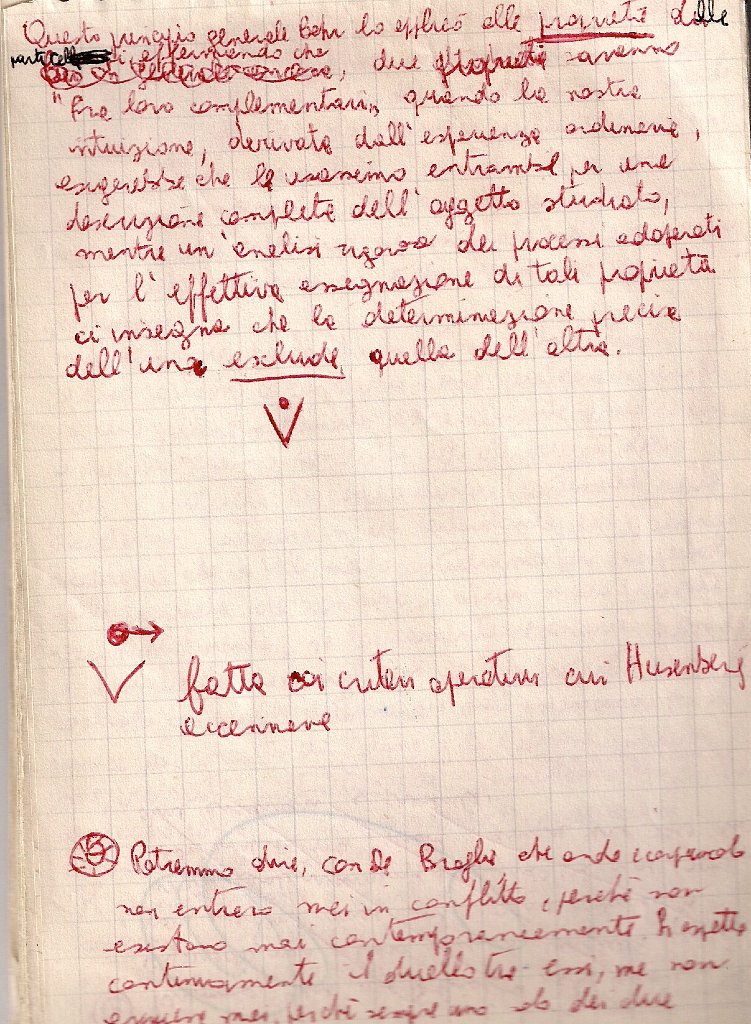 Questo principio generale Bohr lo applicò alle proprietà delle
particelle affermando che
due proprietà saranno
"fra loro complementari" quando la nostra
intuizione, derivata dall'esperienza ordinaria,
esigerebbe che le usassimo entrambe per una
descrizione completa dell'oggetto studiato,
mentre un'analisi rigorosa dei processi adoperati
per l'effettiva assegnazione di tali proprietà
ci insegna che la determinazione precisa
dell'una esclude quella dell'altra.
fatta coi criteri operativi cui Heisenberg
accennava
Potremmo dire, con De Broglie, che onda e corpuscolo
non entrano mai in conflitto, perché non
esistono mai contemporaneamente. Si aspetta
continuamente il duello tra essi, ma non
avviene mai, perché sempre uno solo dei due